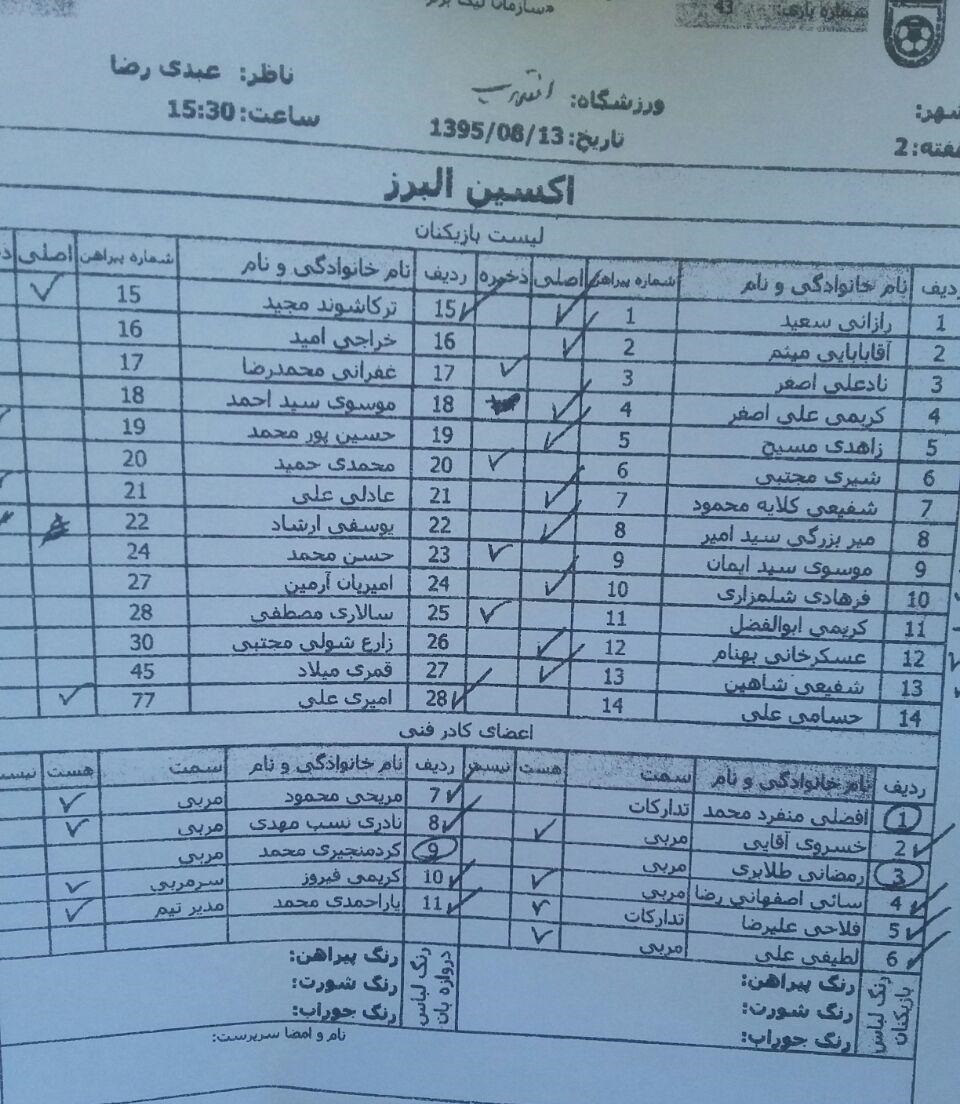 «سازمان لیگ برتر
شماره بازی: 43
شهر: ورزشگاه: انقلاب ناظر: عبدی رضا
هفته: 2 تاریخ: 1395/08/13 ساعت: 15:30
اکسین البرز
لیست بازیکنان
ردیف نام خانوادگی و نام شماره پیراهن اصلی ذخیره ردیف نام خانوادگی و نام شماره پیراهن اصلی
1 رازانی سعید 1 15 ترکاشوند مجید 15
2 آقابابایی میثم 2 16 خراجی امید 16
3 نادعلی اصغر 3 17 غفرانی محمدرضا 17
4 کریمی علی اصغر 4 18 موسوی سید احمد 18
5 زاهدی مسیح 5 19 حسین پور محمد 19
6 شیری مجتبی 6 20 محمدی حمید 20
7 شفیعی کلایه محمود 7 21 عادلی علی 21
8 میر بزرگی سید امیر 8 22 یوسفی ارشاد 22
9 موسوی سید ایمان 9 23 حسن محمد 24
10 فرهادی شلمزاری 10 24 امیریان آرمین 27
11 کریمی ابوالفضل 11 25 سالاری مصطفی 28
12 عسکرخانی بهنام 12 26 زارع شولی مجتبی 30
13 شفیعی شاهین 13 27 قمری میلاد 45
14 حسامی علی 14 28 امیری علی 77
اعضای کادر فنی
ردیف نام خانوادگی و نام سمت هست نیست ردیف نام خانوادگی و نام سمت هست نیست
1 افضلی منفرد محمد تدارکات 7 مریحی محمود مربی
2 خسروی آقایی مربی 8 نادری نسب مهدی مربی
3 رمضانی طلابری مربی 9 کردمنجیری محمد مربی
4 سائی اصفهانی رضا مربی 10 کریمی فیروز سرمربی
5 فلاحی علیرضا تدارکات 11 یاراحمدی محمد مدیر تیم
6 لطیفی علی مربی
رنگ لباس بازیکنان رنگ پیراهن: رنگ لباس دروازه بان رنگ پیراهن:
رنگ شورت: رنگ شورت:
رنگ جوراب: رنگ جوراب:
نام و امضا سرپرست: